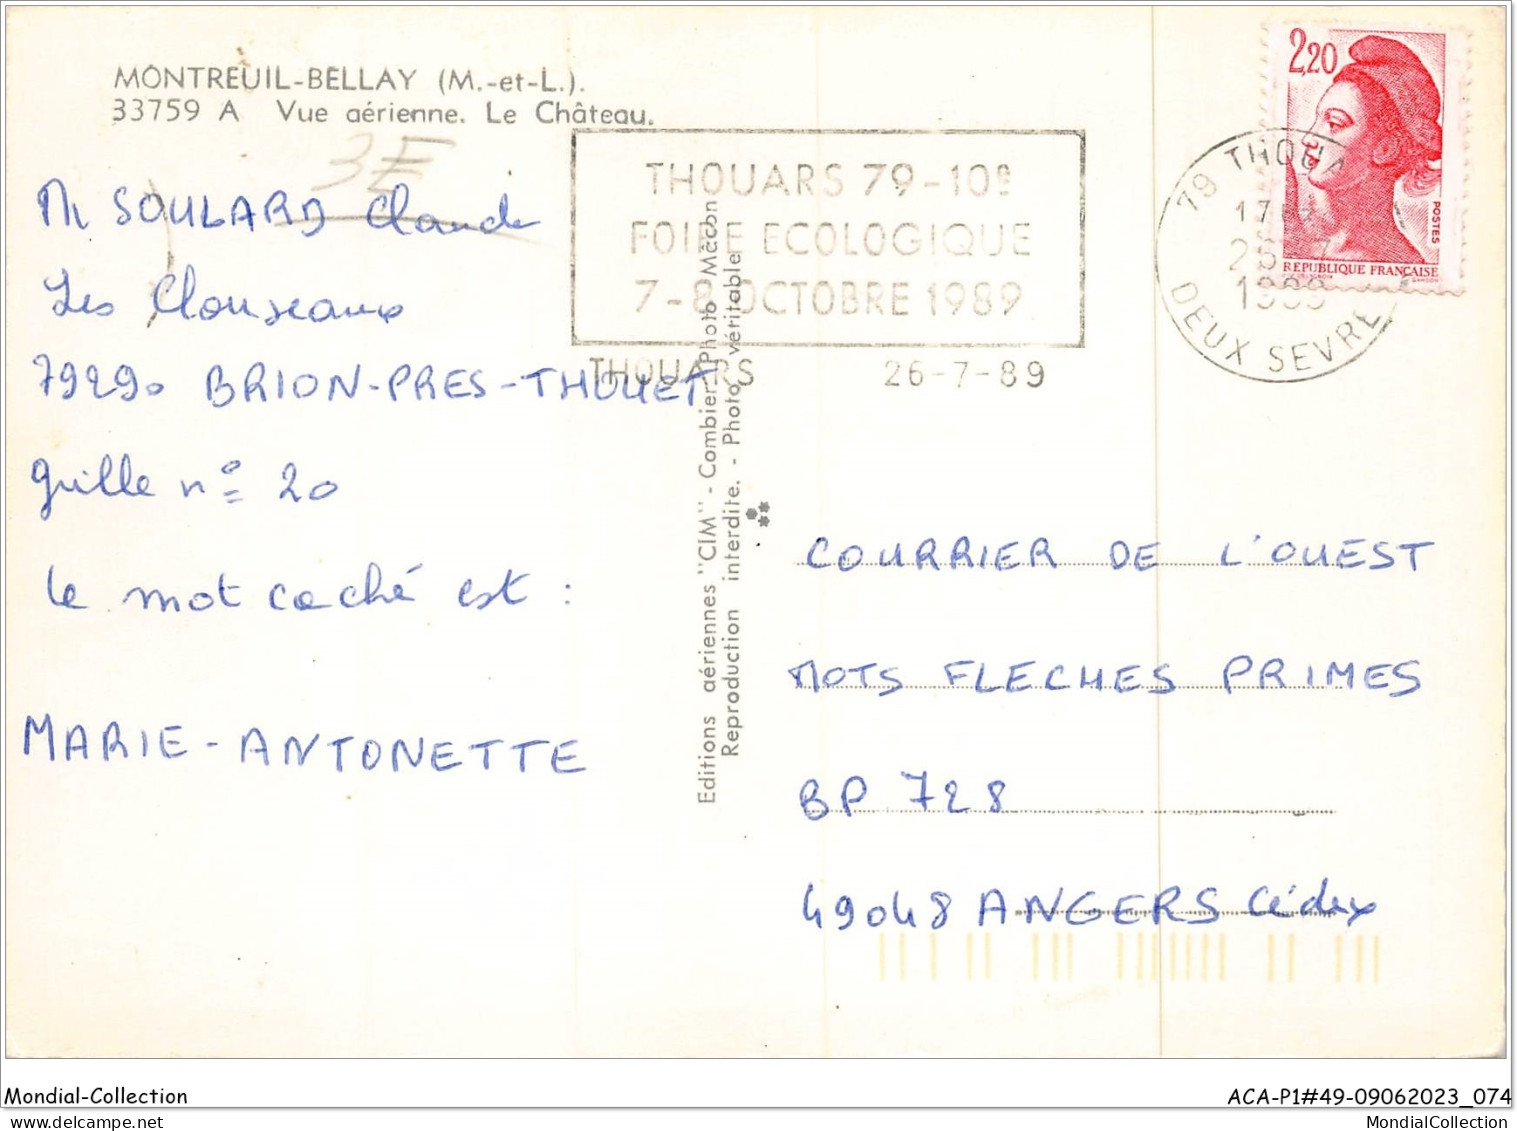 MONTREUIL-BELLAY (M.-et-L.).
33759 A Vue aérienne. Le Château.
3E
M SOULARD Claude
Les Clouseaux
79290 BRION-PRES-THOUET
grille n° 20
le mot caché est :
MARIE-ANTONETTE
THOUARS 79-10e
FOIRE ECOLOGIQUE
7-8 OCTOBRE 1989
THOUARS 26-7-89
Editions aériennes "CIM" - Combier Photo Mâcon
Reproduction interdite. - Photo véritable
2,20
POSTES
REPUBLIQUE FRANÇAISE
GANDON
79 THOUA
17
1989
DEUX SEVRE
COURRIER DE L'OUEST
MOTS FLECHES PRIMES
BP 728
49048 ANGERS Cédex
Mondial-Collection
ACA-P1#49-09062023_074
MondialCollection